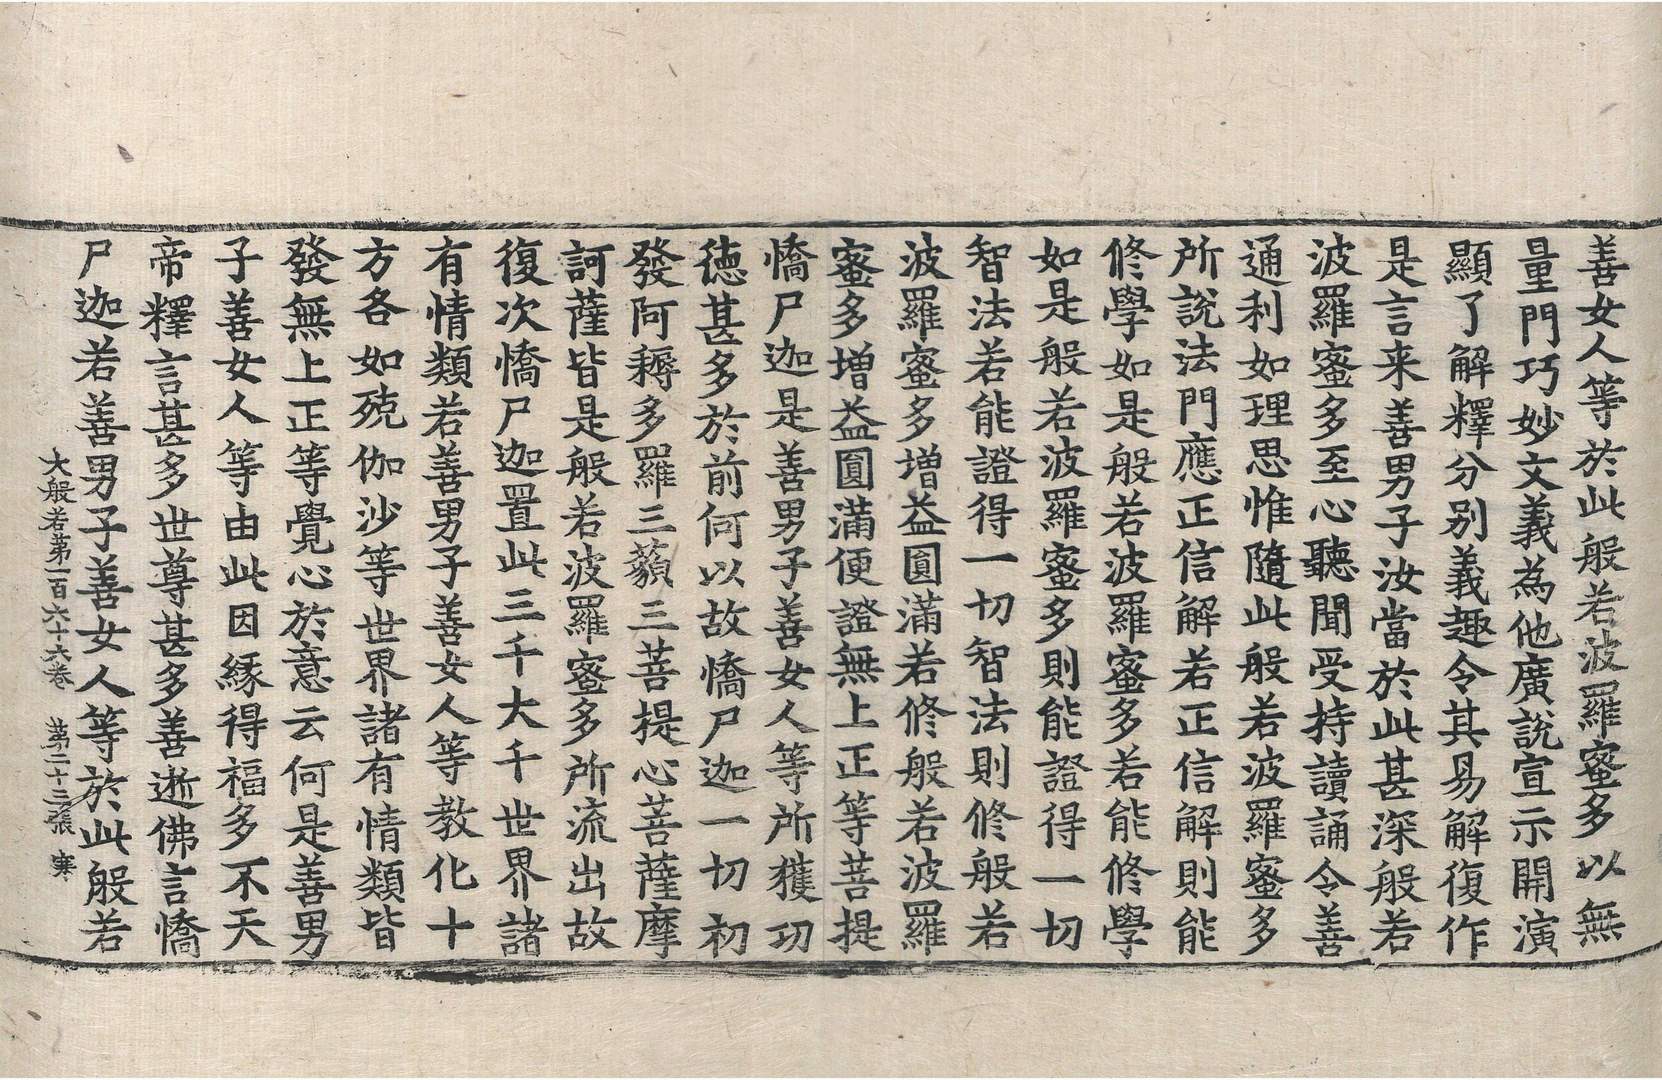 善女人等於此般若波羅蜜多以無
量門巧妙文義為他廣說宣示開演
顯了解釋分別義趣令其易解復作
是言来善男子汝當於此甚深般若
波羅蜜多至心聽聞受持讀誦令善
通利如理思惟隨此般若波羅蜜多
所說法門應正信解若正信解則能
修學如是般若波羅蜜多若能修學
如是般若波羅蜜多則能證得一切
智法若能證得一切智法則修般若
波羅蜜多增益圓滿若修般若波羅
蜜多增益圓滿便證無上正等菩提
憍尸迦是善男子善女人等所獲功
德甚多於前何以故憍尸迦一切初
發阿耨多羅三藐三菩提心菩薩摩
訶薩皆是般若波羅蜜多所流出故
復次憍尸迦置此三千大千世界諸
有情類若善男子善女人等教化十
方各如殑伽沙等世界諸有情類皆
發無上正等覺心於意云何是善男
子善女人等由此因緣得福多不天
帝釋言甚多世尊甚多善逝佛言憍
尸迦若善男子善女人等於此般若
大般若第一百六十六卷 第二十三張 寒